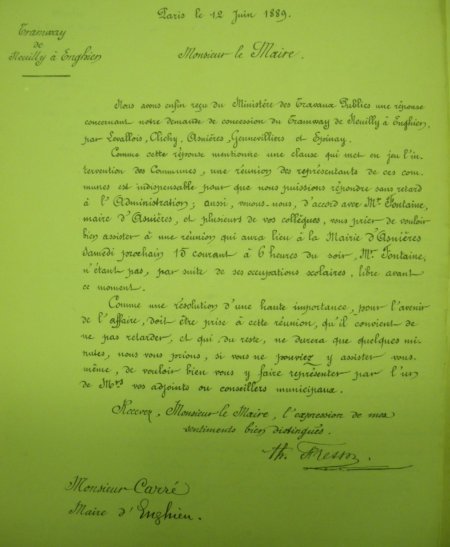 Paris le 12 Juin 1889.
Tramway
de
Neuilly à Enghien
Monsieur le Maire.
Nous avons enfin reçu du Ministère des Travaux Publics une réponse
concernant notre demande de concession du Tramway de Neuilly à Enghien,
par Levallois, Clichy, Asnières, Gennevilliers et Epinay.
Comme cette réponse mentionne une clause qui met en jeu l'in-
tervention des Communes, une réunion des représentants de ces com-
munes est indispensable pour que nous puissions répondre sans retard
à l'Administration; aussi, venons-nous, d'accord avec Mr. Fontaine,
maire d'Asnières, et plusieurs de vos collègues, vous prier de vouloir
bien assister à une réunion qui aura lieu à la Mairie d'Asnières
Samedi prochain 15 courant à 6 heures du soir, Mr. Fontaine,
n'étant pas, par suite de ses occupations scolaires, libre avant
ce moment.
Comme une résolution d'une haute importance, pour l'avenir
de l'affaire, doit être prise à cette réunion, qu'il convient de
ne pas retarder, et qui du reste, ne durera que quelques mi-
nutes, nous vous prions, si vous ne pouviez y assister vous-
même, de vouloir bien vous y faire représenter par l'un
de Mrs vos adjoints ou conseillers municipaux.
Recevez, Monsieur le Maire, l'expression de mes
sentiments bien distingués.
Th.
Monsieur Carré
Maire d'Enghien.